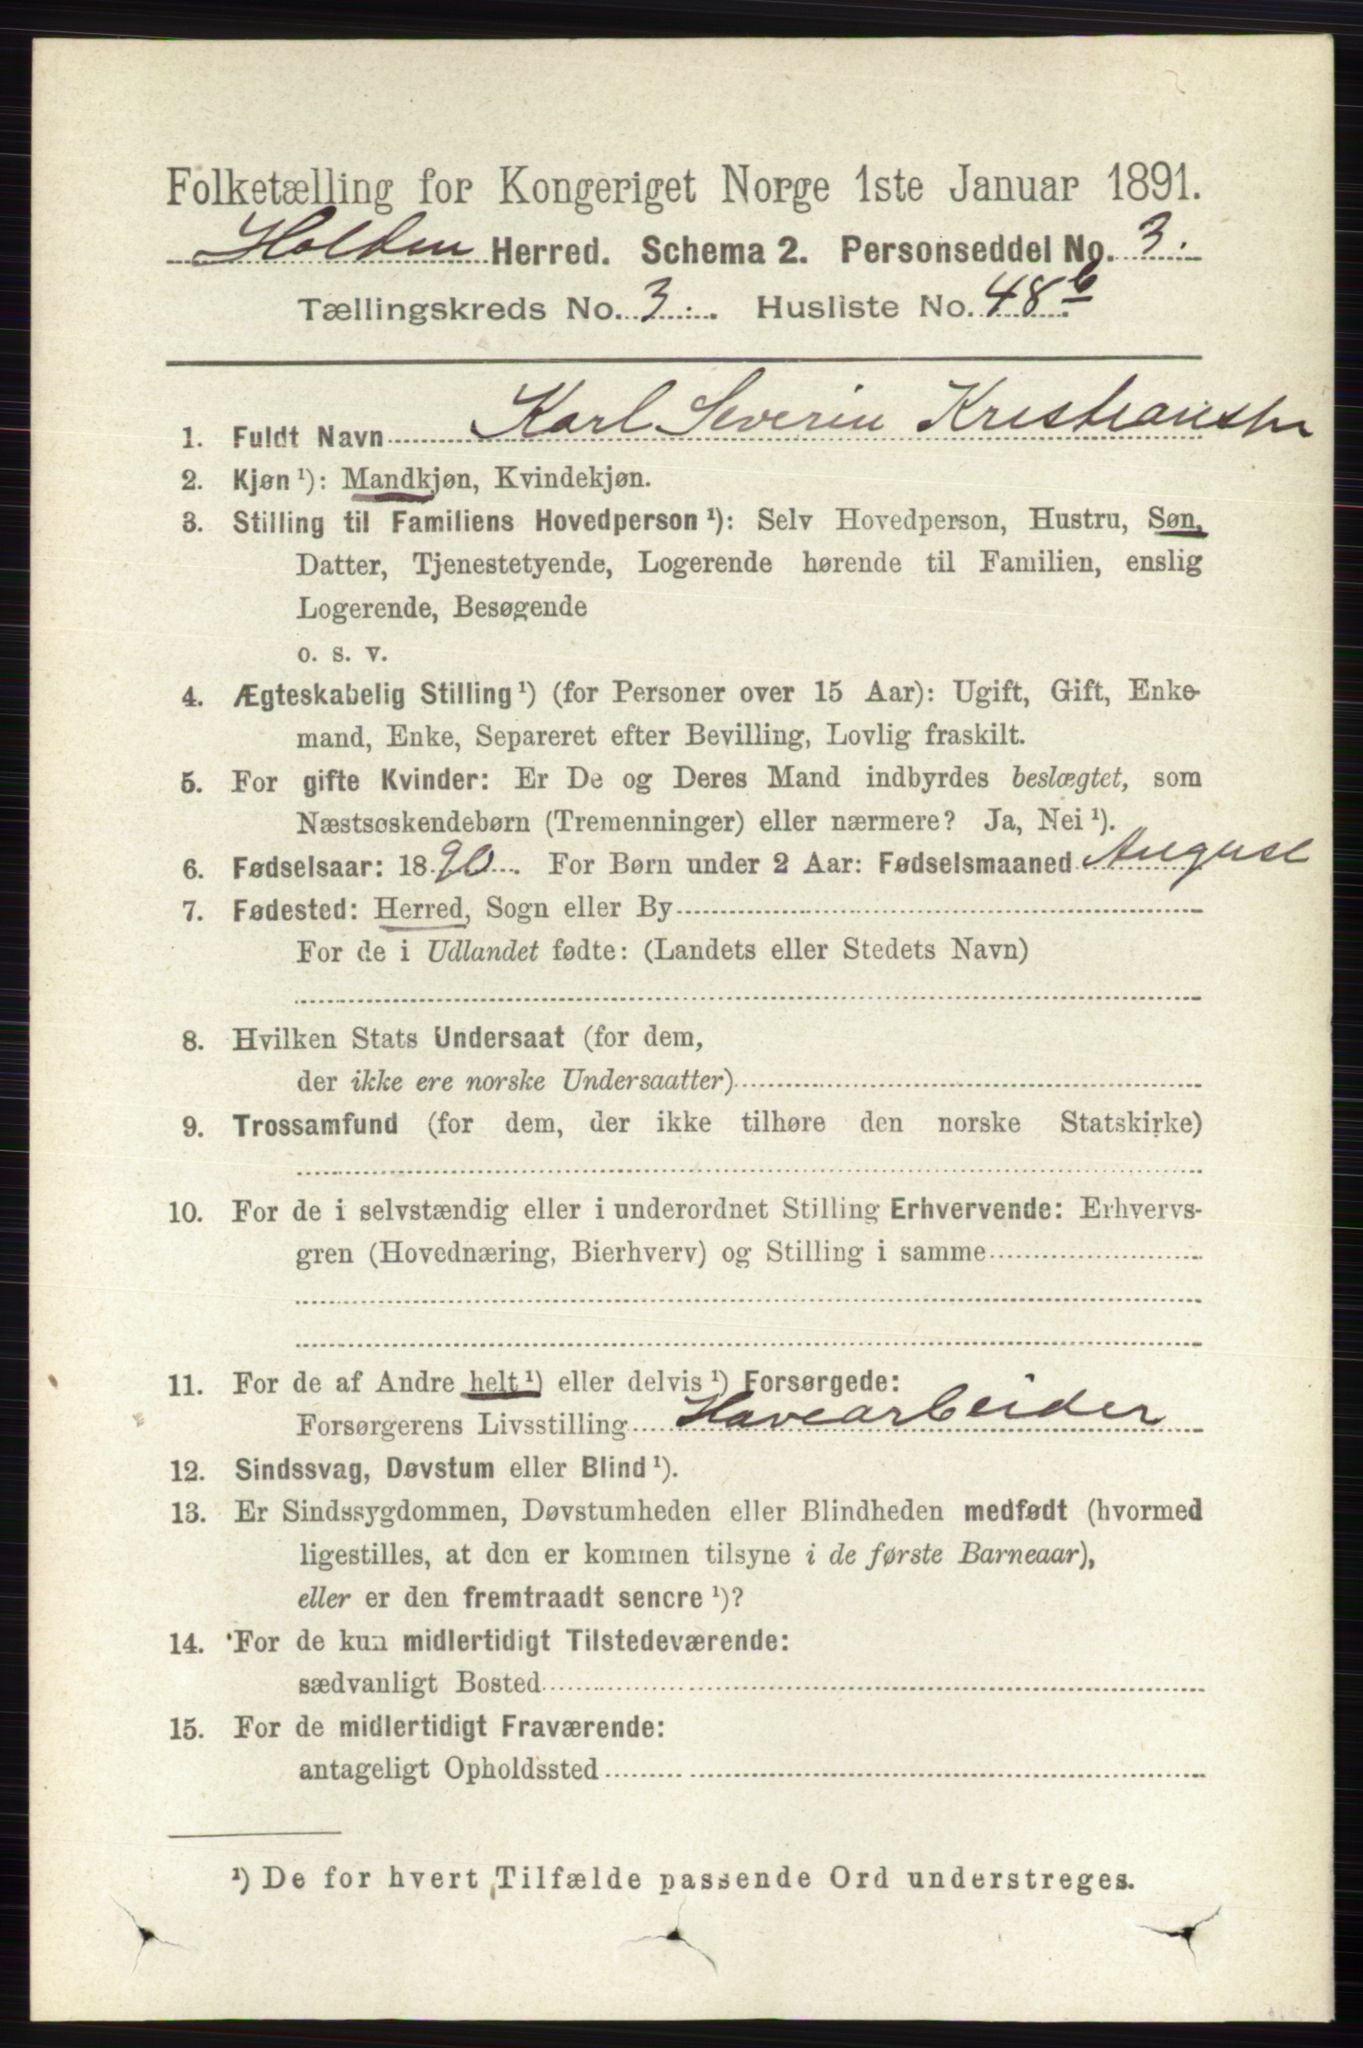 Folketælling for Kongeriget Norge 1ste Januar 1891.
Holden Herred. Schema 2. Personseddel No. 3.
Tællingskreds No. 3. Husliste No. 48 b
1. Fuldt Navn Karl Severin Kristiansen
2. Kjøn ¹): Mandkjøn, Kvindekjøn.
3. Stilling til Familiens Hovedperson ¹): Selv Hovedperson, Hustru, Søn,
Datter, Tjenestetyende, Logerende hørende til Familien, enslig
Logerende, Besøgende
o. s. v.
4. Ægteskabelig Stilling ¹) (for Personer over 15 Aar): Ugift, Gift, Enke-
mand, Enke, Separeret efter Bevilling, Lovlig fraskilt.
5. For gifte Kvinder: Er De og Deres Mand indbyrdes beslægtet, som
Næstsøskendebørn (Tremenninger) eller nærmere? Ja, Nei ¹).
6. Fødselsaar: 1890. For Børn under 2 Aar: Fødselsmaaned August
7. Fødested: Herred, Sogn eller By
For de i Udlandet fødte: (Landets eller Stedets Navn)
8. Hvilken Stats Undersaat (for dem,
der ikke ere norske Undersaatter)
9. Trossamfund (for dem, der ikke tilhøre den norske Statskirke)
10. For de i selvstændig eller i underordnet Stilling Erhvervende: Erhvervs-
gren (Hovednæring, Bierhverv) og Stilling i samme
11. For de af Andre helt ¹) eller delvis ¹) Forsørgede:
Forsørgerens Livsstilling Havearbeider
12. Sindssvag, Døvstum eller Blind ¹).
13. Er Sindssygdommen, Døvstumheden eller Blindheden medfødt (hvormed
ligestilles, at den er kommen tilsyne i de første Barneaar),
eller er den fremtraadt senere ¹)?
14. For de kun midlertidigt Tilstedeværende:
sædvanligt Bosted
15. For de midlertidigt Fraværende:
antageligt Opholdssted
¹) De for hvert Tilfælde passende Ord understreges.